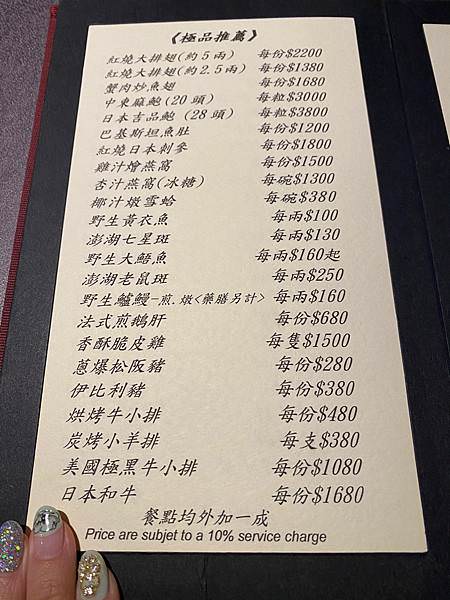 《極品推薦》
紅燒大排翅(約5兩) 每份$2200
紅燒大排翅(約2.5兩) 每份$1380
蟹肉炒魚翅 每份$1680
中東麻鮑(20頭) 每粒$3000
日本吉品鮑(28頭) 每粒$3800
巴基斯坦魚肚 每份$1200
紅燒日本刺參 每份$1800
雞汁燴燕窩 每份$1500
杏汁燕窩(冰糖) 每碗$1300
椰汁燉雪蛤 每碗$380
野生黃衣魚 每兩$100
澎湖七星斑 每兩$130
野生大䱛魚 每兩$160起
澎湖老鼠斑 每兩$250
野生鱸鰻-煎.燉<藥膳另計> 每兩$160
法式煎鵝肝 每份$680
香酥脆皮雞 每隻$1500
蔥爆松阪豬 每份$280
伊比利豬 每份$380
烘烤牛小排 每份$480
炭烤小羊排 每支$380
美國極黑牛小排 每份$1080
日本和牛 每份$1680
餐點均外加一成
Price are subjet to a 10% service charge